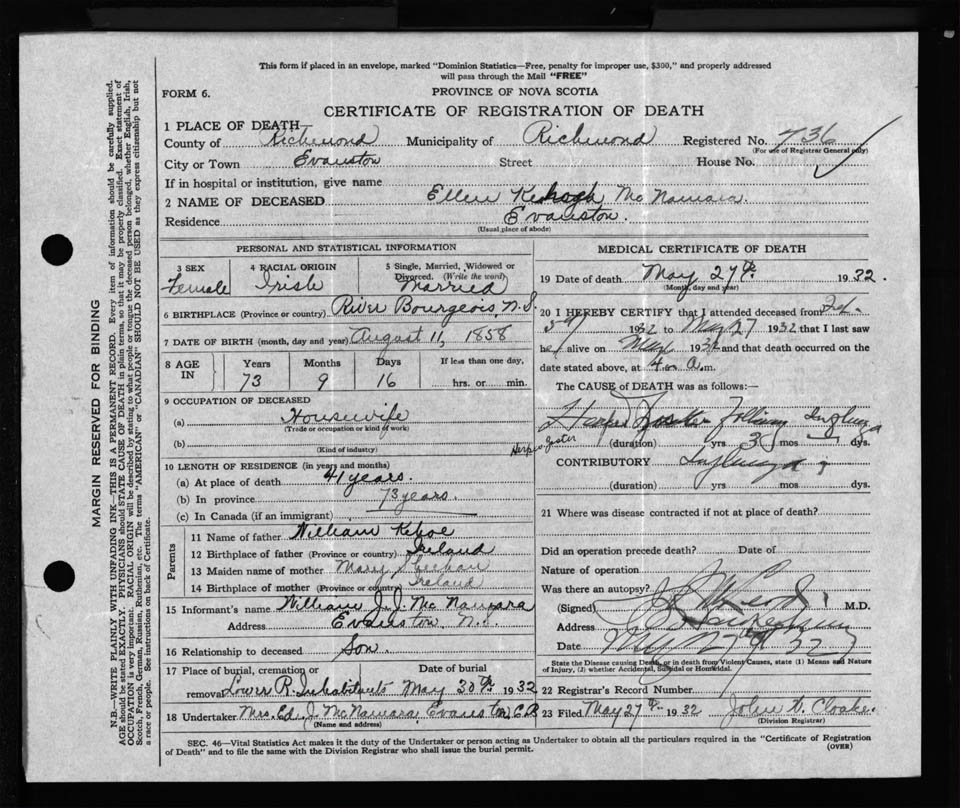 This form if placed in an envelope, marked "Dominion Statistics—Free, penalty for improper use, $300," and properly addressed
will pass through the Mail "FREE"
FORM 6.
PROVINCE OF NOVA SCOTIA
CERTIFICATE OF REGISTRATION OF DEATH
1 PLACE OF DEATH—
County of Richmond Municipality of Richmond Registered No. 736
(For use of Registrar General only)
City or Town Evanston Street House No.
If in hospital or institution, give name
2 NAME OF DECEASED Ellen Mc Namara
Residence Evanston.
(Usual place of abode)
PERSONAL AND STATISTICAL INFORMATION
3 SEX Female
4 RACIAL ORIGIN Irish
5 Single, Married, Widowed or
Divorced. (Write the word)
Married
6 BIRTHPLACE (Province or country) River Bourgeois, N.S.
7 DATE OF BIRTH (month, day and year) August 11, 1858
8 AGE IN Years 73 Months 9 Days 16 If less than one day,
hrs. or min.
9 OCCUPATION OF DECEASED
(a) Housewife
(Trade or occupation or kind of work)
(b)
(Kind of industry)
10 LENGTH OF RESIDENCE (in years and months)
(a) At place of death 41 years.
(b) In province 73 years.
(c) In Canada (if an immigrant)
Parents
11 Name of father William Kehoe
12 Birthplace of father (Province or country) Ireland
13 Maiden name of mother Mary
14 Birthplace of mother (Province or country) Ireland
15 Informant's name William J. J. Mc Namara
Address Evanston, N.S.
16 Relationship to deceased Son
17 Place of burial, cremation or Date of burial
removal Lower R. Inhabitants May 30th 1932
18 Undertaker Mrs. Ed. J. McNamara, Evanston, C.B.
(Name and address)
MEDICAL CERTIFICATE OF DEATH
19 Date of death May 27th. 1932.
(Month, day and year)
20 I HEREBY CERTIFY that I attended deceased from
1932 to May 27 1932 that I last saw
her alive on May 1932 and that death occurred on the
date stated above, at 4 a.m.
The CAUSE of DEATH was as follows:—
Herpes Zoster Influenza
Herpes
Zoster (duration) yrs 3 mos dys.
CONTRIBUTORY Influenza
(duration) yrs. mos. dys.
21 Where was disease contracted if not at place of death?
Did an operation precede death? Date of
Nature of operation
Was there an autopsy?
(Signed) M.D.
Address
Date May 27th 32
State the Disease causing Death, or in death from Violent Causes, state (1) Means and Nature
of Injury, (2) whether Accidental, Suicidal or Homicidal.
22 Registrar's Record Number
23 Filed May 27th 1932 John D. Cloake.
(Division Registrar)
SEC. 46—Vital Statistics Act makes it the duty of the Undertaker or person acting as Undertaker to obtain all the particulars required in the "Certificate of Registration
of Death" and to file the same with the Division Registrar who shall issue the burial permit.
(OVER)
MARGIN RESERVED FOR BINDING
N.B.—WRITE PLAINLY WITH UNFADING INK—THIS IS A PERMANENT RECORD. Every item of information should be carefully supplied.
AGE should be stated EXACTLY. PHYSICIANS should STATE CAUSE OF DEATH in plain terms, so that it may be properly classified. Exact statement of
OCCUPATION is very important. RACIAL ORIGIN will be described by stating to what people or tongue the deceased person belonged, whether English, Irish,
Scotch, French, German, Russian, Ruthenian, etc. The terms "AMERICAN" or "CANADIAN" SHOULD NOT BE USED as they express citizenship but not
a race or people. See instructions on back of Certificate.